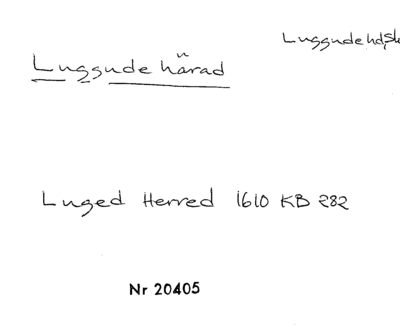 Luggude hd, Sk
Luggude härad
Luged Herred 1610 KB 282
Nr 20405